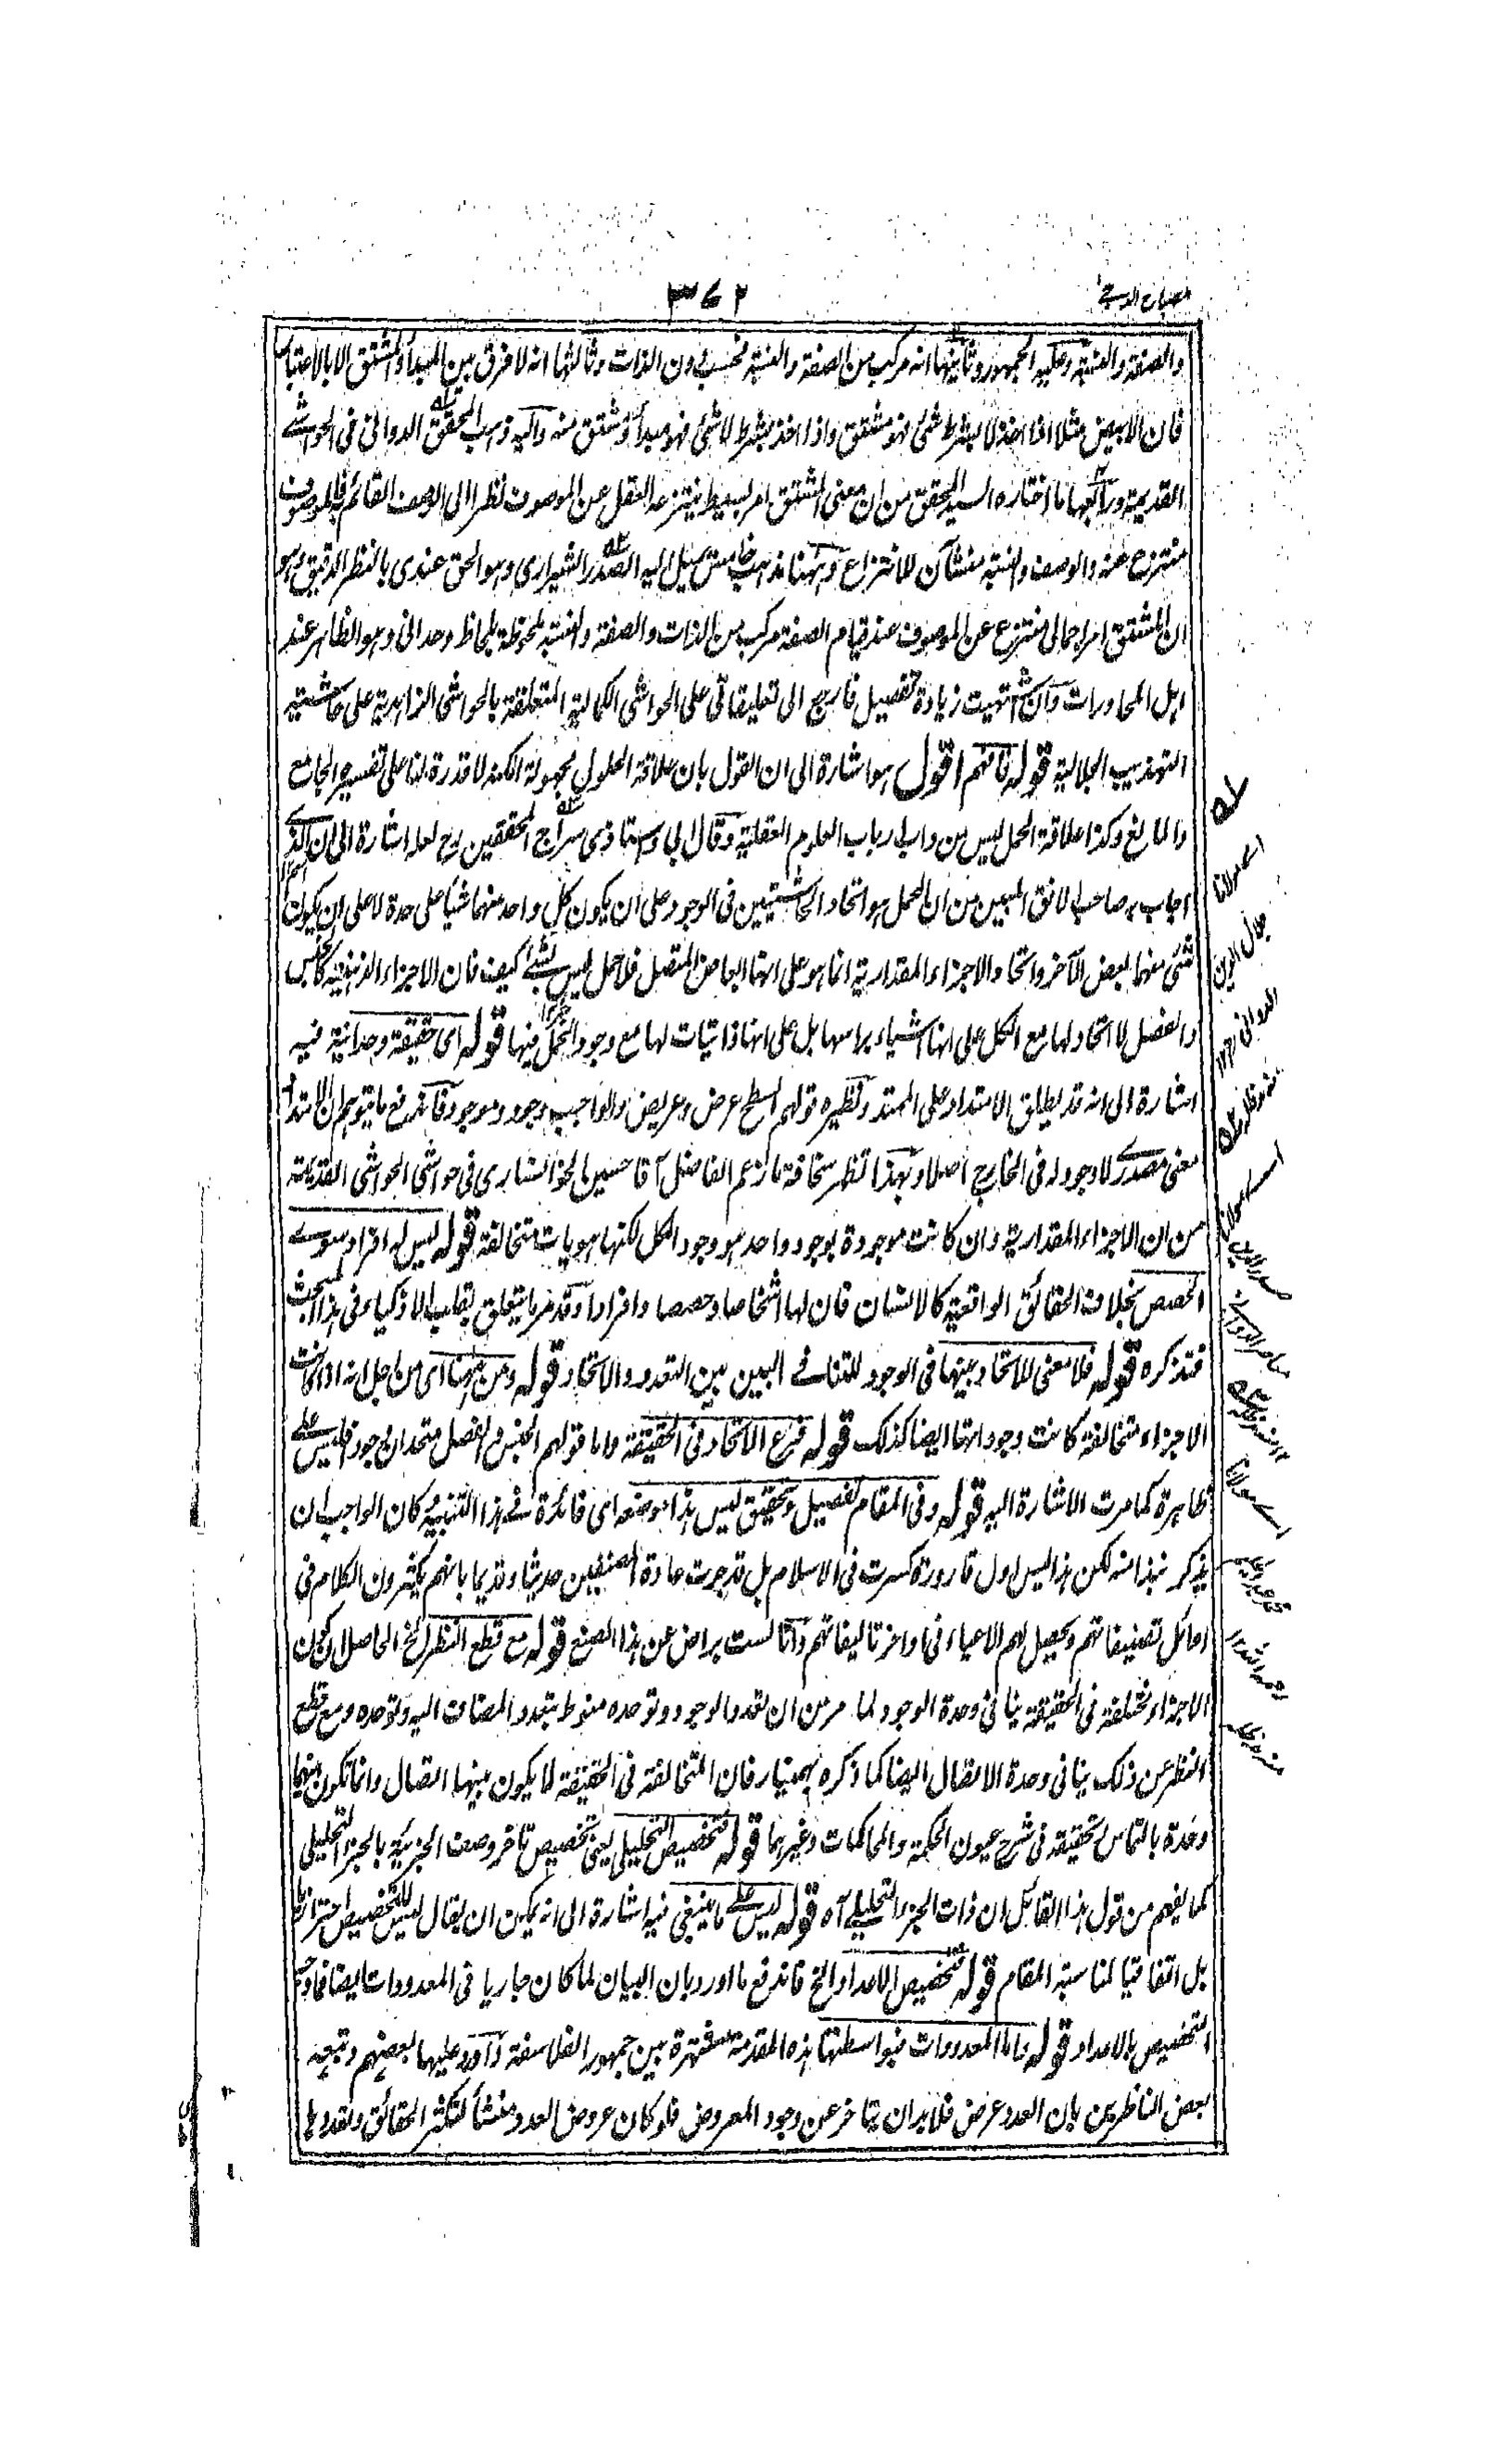 مصباح الدجى
٣٧٢
والصفة والنسبة وعليه الجمهور وثانيها انه مركب من الصفة والنسبة فحسب دون الذات وثالثها انه لا فرق بين المبدأ والمشتق الا بالاعتبار
فان الابيض مثلا اذا اخذ لا بشرط شئ فهو مشتق واذا اخذ بشرط لا شئ فهو مبدأ ومشتق منه واليه ذهب المحقق الدوانى فى الحواشى
القديمة ورابعها ما اختاره السيد المحقق من ان معنى المشتق امر بسيط ينتزعه العقل عن الموصوف نظرا الى الوصف القائم به فالموصوف
منتزع عنه والوصف والنسبة منشآن للانتزاع وههنا مذهب خامس سبيل اليه الصدر الشيرازى وهو الحق عندى بالنظر الدقيق وهو
ان المشتق امر اجمالى منتزع عن الموصوف عند قيام الصفة مركب من الذات والصفة والنسبة ملحوظة بلحاظ وحدانى وهو الظاهر عند
اهل المحاورات وان اشتهيت زيادة تفصيل فارجع الى تعليقاتى على الحواشى الكمالية المتعلقة بالحواشى الزاهدية على حاشية
التهذيب الجلالية قوله فافهم اقول هو اشارة الى ان القول بان علاقة الحلول مجهولة الكنه لا قدرة لنا على تفسيره الجامع
والمانع وكذا علاقة الحمل ليس من داب ارباب العلوم العقلية وقال ابى واستاذى سراج المحققين رح لعله اشارة الى ان الذى
اجاب به صاحب الافق المبين من ان الحمل هو اتحاد الحاشيتين فى الوجود على ان يكون كل واحد منهما شيأ على حدة لا على ان يكون
شئ منهما بعض الآخر واتحاد الاجزاء المقدارية انما هو على انها ابعاض المتصل فلا حمل ليس بشئ كيف فان الاجزاء الذهنية كالجنس
والفصل لا اتحاد لها مع الكل على انها اشياء برأسها بل على انها ذاتيات لها مع وجود الحمل فيها قوله اى حقيقة وحدانية فيه
اشارة الى انه قد يطلق الامتداد على الممتد ونظيره قولهم السطح عرض وعريض والواجب وجود وموجود فاندفع ما يتوهم ان الامتداد
معنى مصدرى لا وجود له فى الخارج اصلا وبهذا تظهر سخافة ما زعم الفاضل آقا حسين الخوانسارى فى حواشى الحواشى القديمة
من ان الاجزاء المقدارية وان كانت موجودة بوجود واحد هو وجود الكل لكنها هويات متخالفة قوله ليس له افراد سوى
الحصص بخلاف الحقائق الواقعية كالانسان فان لها اشخاصا وحصصا وافرادا وقد مر ما يتعلق بقلب الاذكياء فى هذا المبحث
فتذكره قوله فلا معنى للاتحاد بينها فى الوجود للتنافى البين بين التعدد والاتحاد قوله ومن ههنا اى من اجل انه اذا كانت
الاجزاء متخالفة كانت وجوداتها ايضا كذلك قوله فرع الاتحاد فى الحقيقة واما قولهم الجنس والفصل متحدان وجودا فليس على
ظاهره كما مرت الاشارة اليه قوله وفى المقام تفصيل وتحقيق ليس هذا موضعه اى فائدة فى هذا التنبيه كان الواجب ان
يذكر نبذا منه لكن هذا ليس اول قارورة كسرت فى الاسلام بل قد جرت عادة المصنفين حديثا وقديما بانهم يكثرون الكلام فى
اوائل تصنيفاتهم ويحصل لهم الاعياء فى اواخر تاليفاتهم وانا لست براض عن هذا الصنع قوله مع قطع النظر الخ الحاصل ان كون
الاجزاء مختلفة فى الحقيقة ينافى وحدة الوجود لما مر من ان تعدد الوجود وتوحده منوط بتعدد المضاف اليه وتوحده ومع قطع
النظر عن ذلك ينافى وحدة الاتصال ايضا كما ذكره بهمنيار فان المتخالفة فى الحقيقة لا يكون بينها اتصال وانما تكون بينها
وحدة بالتماس تحقيقه فى شرح عيون الحكمة والمحاكمات وغيرهما قوله فتخصيص التحليلى يعنى تخصيص تاخر وصف الجزئية بالجزء التحليلى
كما يفهم من قول هذا القائل ان ذات الجزء التحليلى آه قوله ليس على ما ينبغى فيه اشارة الى انه يمكن ان يقال ليس التخصيص احترازيا
بل اتفاقيا لمناسبة المقام قوله فتخصيص الاعداد الخ فاندفع ما اورد بان البيان لما كان جاريا فى المعدودات ايضا فما وجه
التخصيص بالاعداد قوله واما المعدودات فبواسطتها هذه المقدمة مشتهرة بين جمهور الفلاسفة واورد عليها بعضهم وتبعه
بعض الناظرين بان العدد عرض فلا بد ان يتاخر عن وجود المعروض فلو كان عروض العدد منشأ لتكثر الحقائق وتعددها
اى مولانا
جلال الدين
الدوانى ١٢
منه مدظله
اى مولانا
صدر الدين
اى مولانا
محمد عبد الحليم
رحمه الله ١٢
منه مدظله